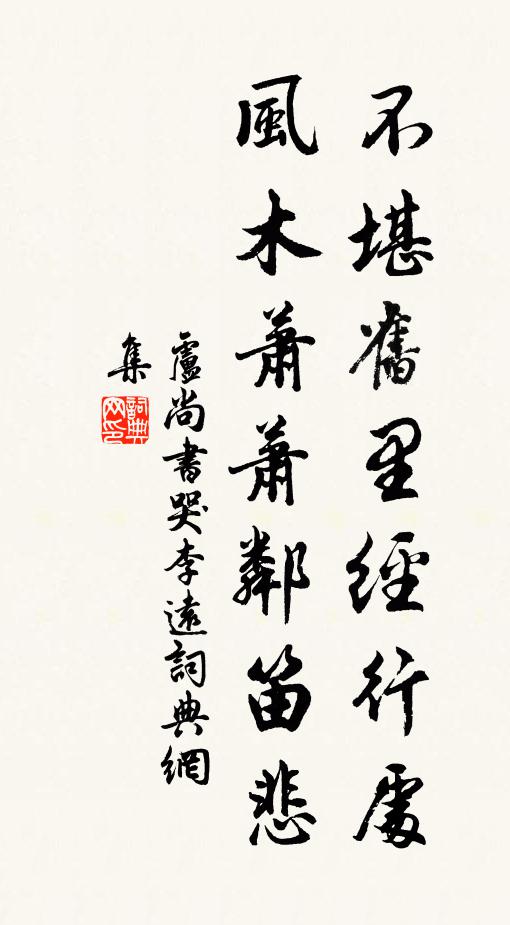 不堪舊里經行處
風木蕭蕭鄰笛悲
盧尚書哭李遠詞典網
集
詞典
网印